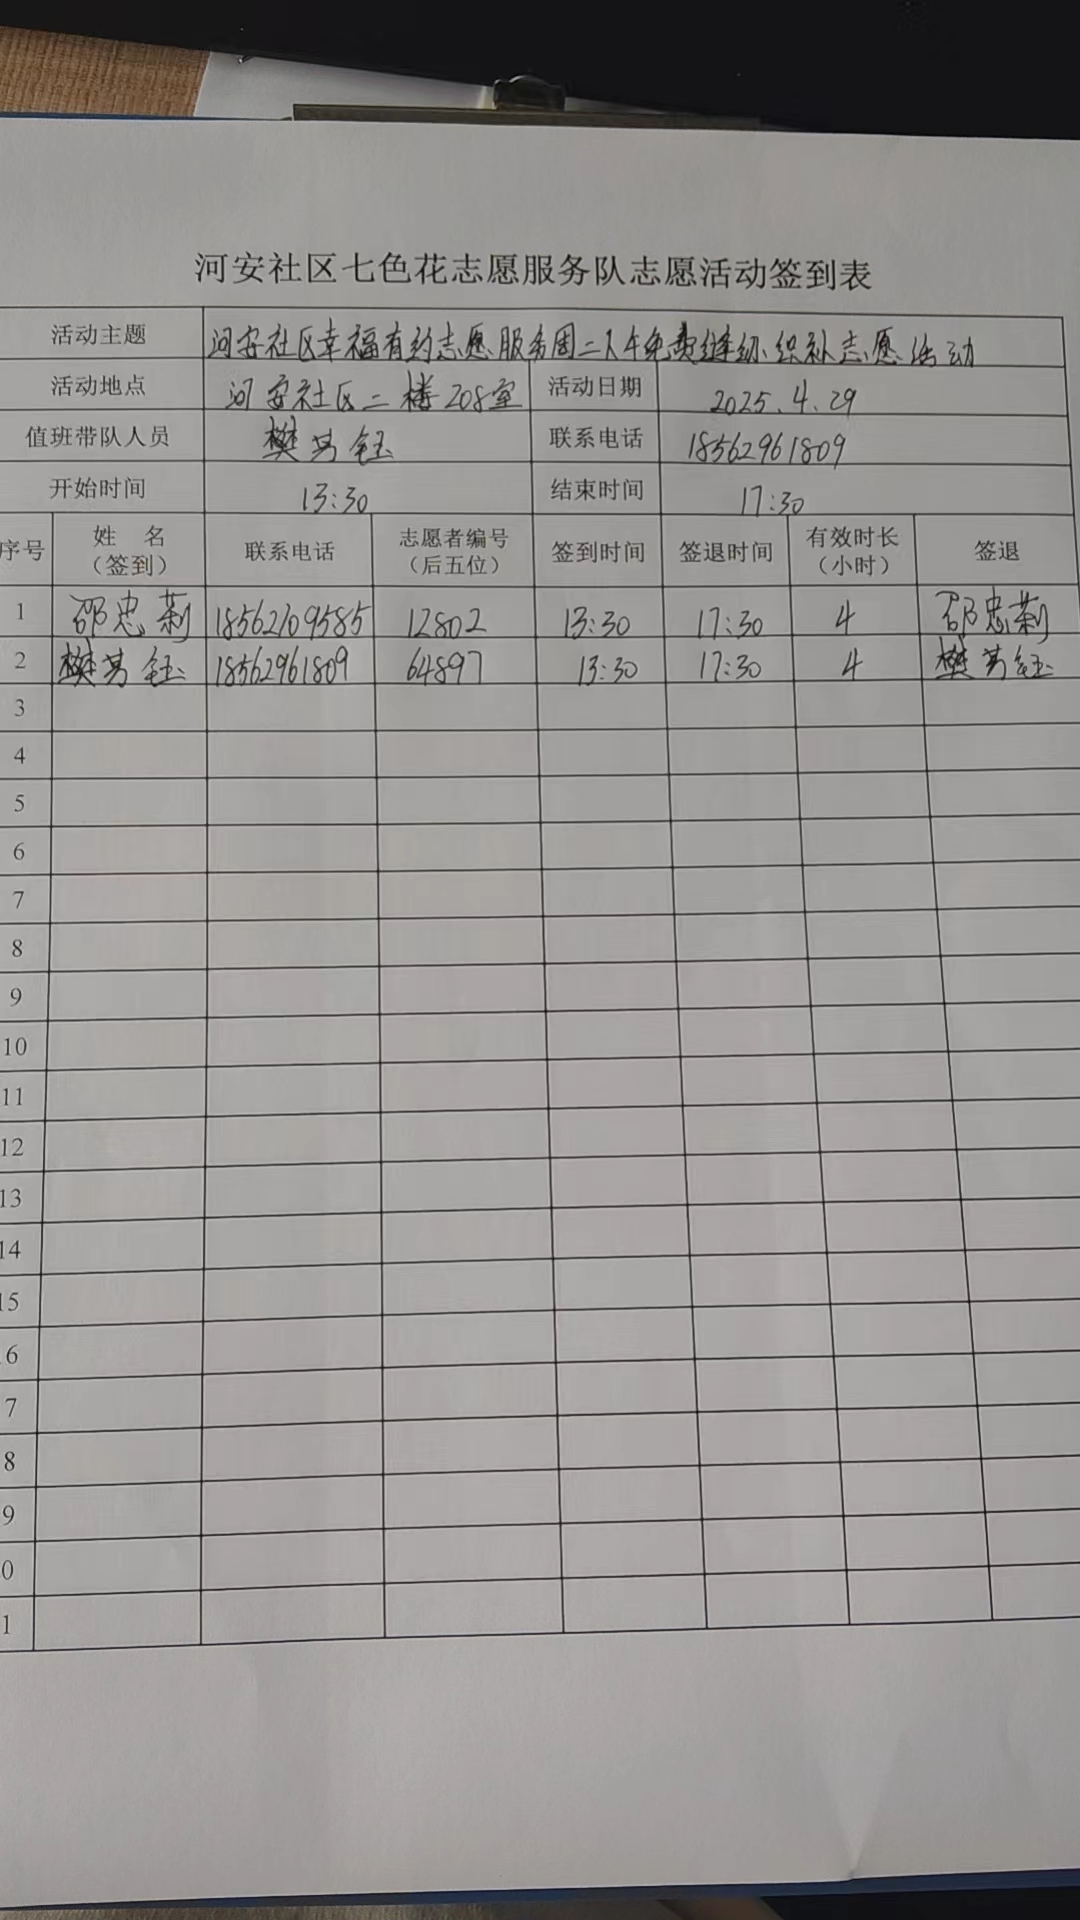 河安社区七色花志愿服务队志愿活动签到表
活动主题 河安社区幸福有约志愿服务周二下午免费缝纫、织补志愿活动
活动地点 河安社区二楼208室 活动日期 2025.4.29
值班带队人员 樊芳钰 联系电话 18562961809
开始时间 13:30 结束时间 17:30
序号 姓 名（签到） 联系电话 志愿者编号（后五位） 签到时间 签退时间 有效时长（小时） 签退
1 邵忠莉 18562109585 12802 13:30 17:30 4 邵忠莉
2 樊芳钰 18562961809 64897 13:30 17:30 4 樊芳钰
3
4
5
6
7
8
9
10
11
12
13
14
15
6
7
8
9
0
1